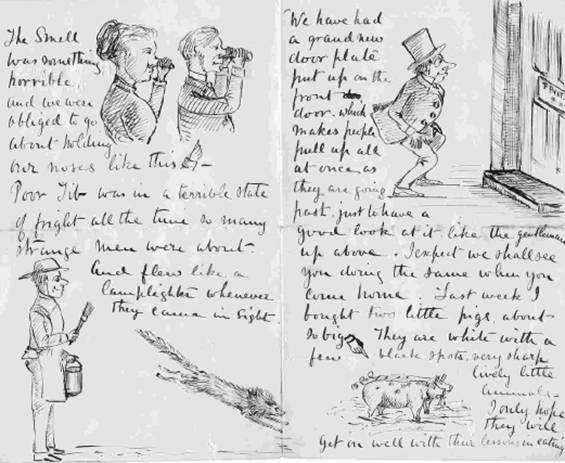 The Smell
was something
horrible,
and we were
obliged to go
about holding
our noses like this –
Poor Tib was in a terrible state
of fright all the time so many
strange men were about.
And flew like a
lamplighter whenever
they came in sight.
We have had
a grand new
door plate
put up on the
front
door. which
makes people
pull up all
at once, as
they are going
past, just to have a
good look at it like the gentleman
up above. I expect we shall see
you doing the same when you
come home. Last week I
bought two little pigs, about
So big They are white with a
few black spots, very sharp
lively little
animals –
I only hope
they will
get on well with their lessons in eating